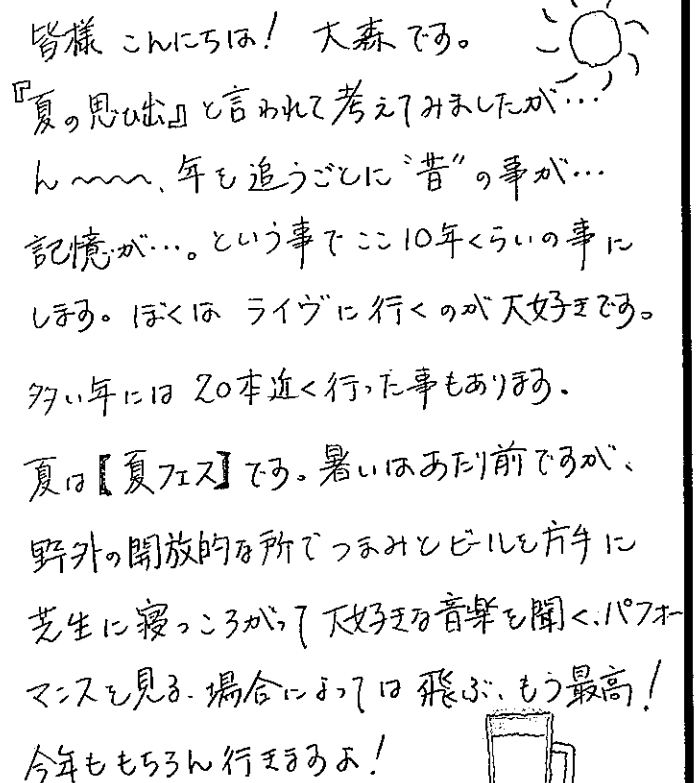 皆様 こんにちは! 大森です。
『夏の思ひ出』と言われて考えてみましたが…
ん〜〜〜、年を追うごとに“昔”の事が…
記憶が…。という事でここ10年くらいの事に
します。ぼくは ライヴに行くのが大好きです。
多い年には20本近く行った事もあります。
夏は【夏フェス】です。暑いはあたり前ですが、
野外の開放的な所でつまみとビールを片手に
芝生に寝っころがって大好きな音楽を聞く、パフォー
マンスを見る、場合によっては飛ぶ、もう最高!
今年ももちろん行きますよ!